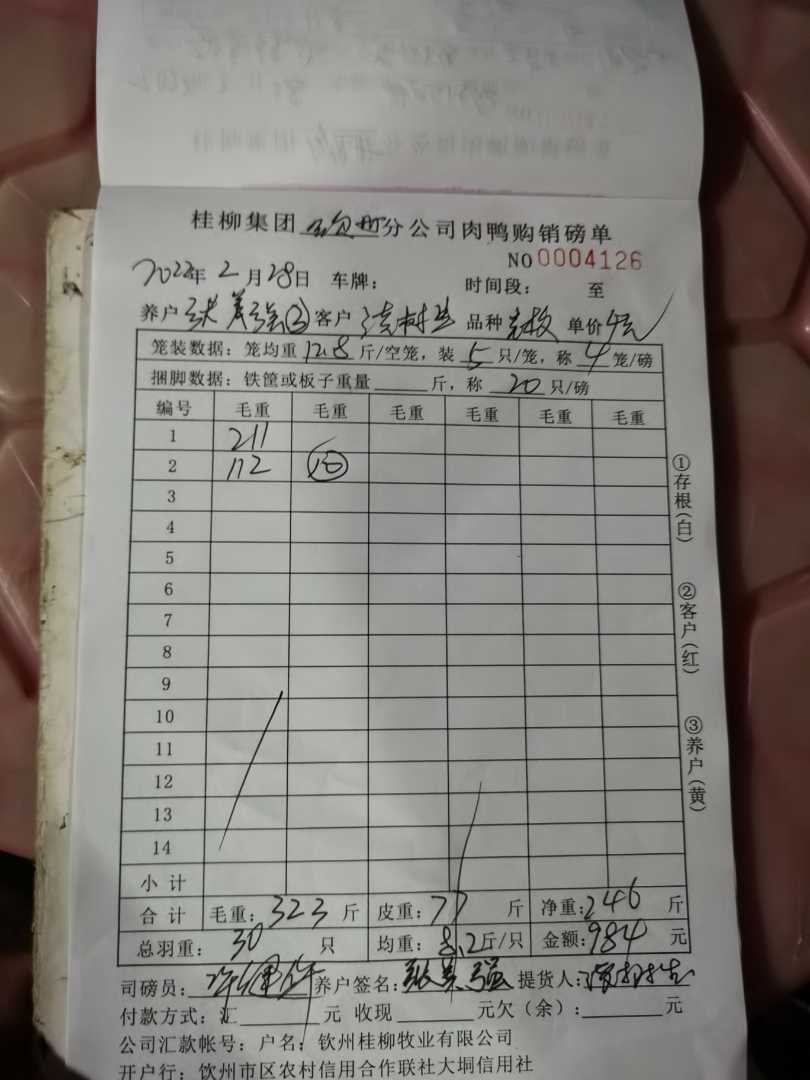 桂柳集团 钦州 分公司肉鸭购销磅单
NO 0004126
2022年2月28日 车牌： 时间段： 至
养户 张美强② 客户 品种 单价4元
笼装数据：笼均重12.8斤/空笼，装5只/笼，称4笼/磅
捆脚数据：铁筐或板子重量____斤，称20只/磅
编号 毛重 毛重 毛重 毛重 毛重 毛重
1 211
2 112 10
3
4
5
6
7
8
9
10
11
12
13
14
小计
合计 毛重：323斤 皮重：77斤 净重：246斤
总羽重：30只 均重：8.2斤/只 金额：984元
司磅员： 养户签名：张美强 提货人：
付款方式：汇____元 收现____元欠（余）：____元
公司汇款帐号：户名：钦州桂柳牧业有限公司
开户行：钦州市区农村信用合作联社大垌信用社
①存根（白）
②客户（红）
③养户（黄）